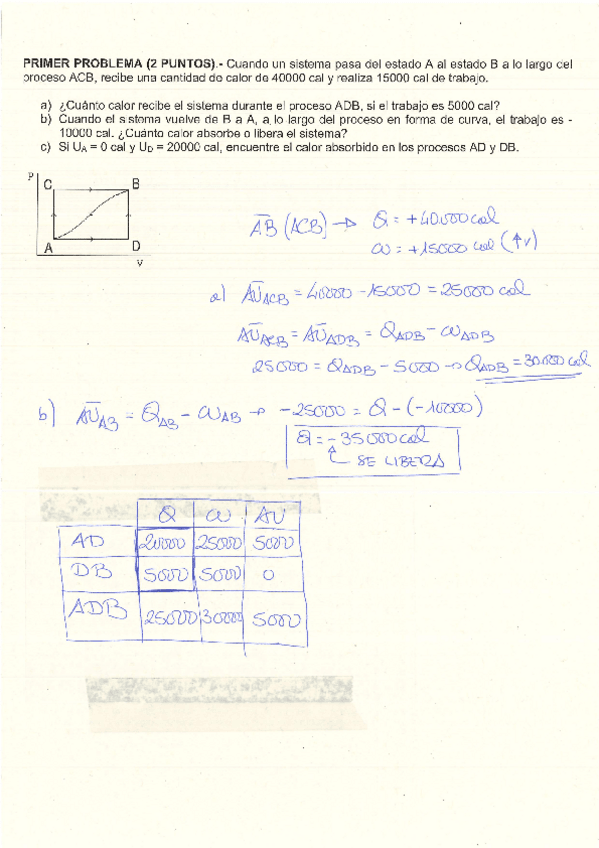 PRIMER PROBLEMA (2 PUNTOS).- Cuando un sistema pasa del estado A al estado B a lo largo del
proceso ACB, recibe una cantidad de calor de 40000 cal y realiza 15000 cal de trabajo.
a) ¿Cuánto calor recibe el sistema durante el proceso ADB, si el trabajo es 5000 cal?
b) Cuando el sistema vuelve de B a A, a lo largo del proceso en forma de curva, el trabajo es -
10000 cal. ¿Cuánto calor absorbe o libera el sistema?
c) Si U_A = 0 cal y U_D = 20000 cal, encuentre el calor absorbido en los procesos AD y DB.
P
C B
A D
V
AB (ACB) → Q = +40.000 cal
ω = +15000 cal (↑V)
a) ΔU_ACB = 40000 - 15000 = 25000 cal
ΔU_ACB = ΔU_ADB = Q_ADB - ω_ADB
25000 = Q_ADB - 5000 → Q_ADB = 30.000 cal
b) ΔU_AB = Q_AB - ω_AB → -25000 = Q - (-10000)
Q = -35000 cal
SE LIBERA
Q ω ΔU
AD 20000 25000 5000
DB 5000 5000 0
ADB 25000 30000 5000